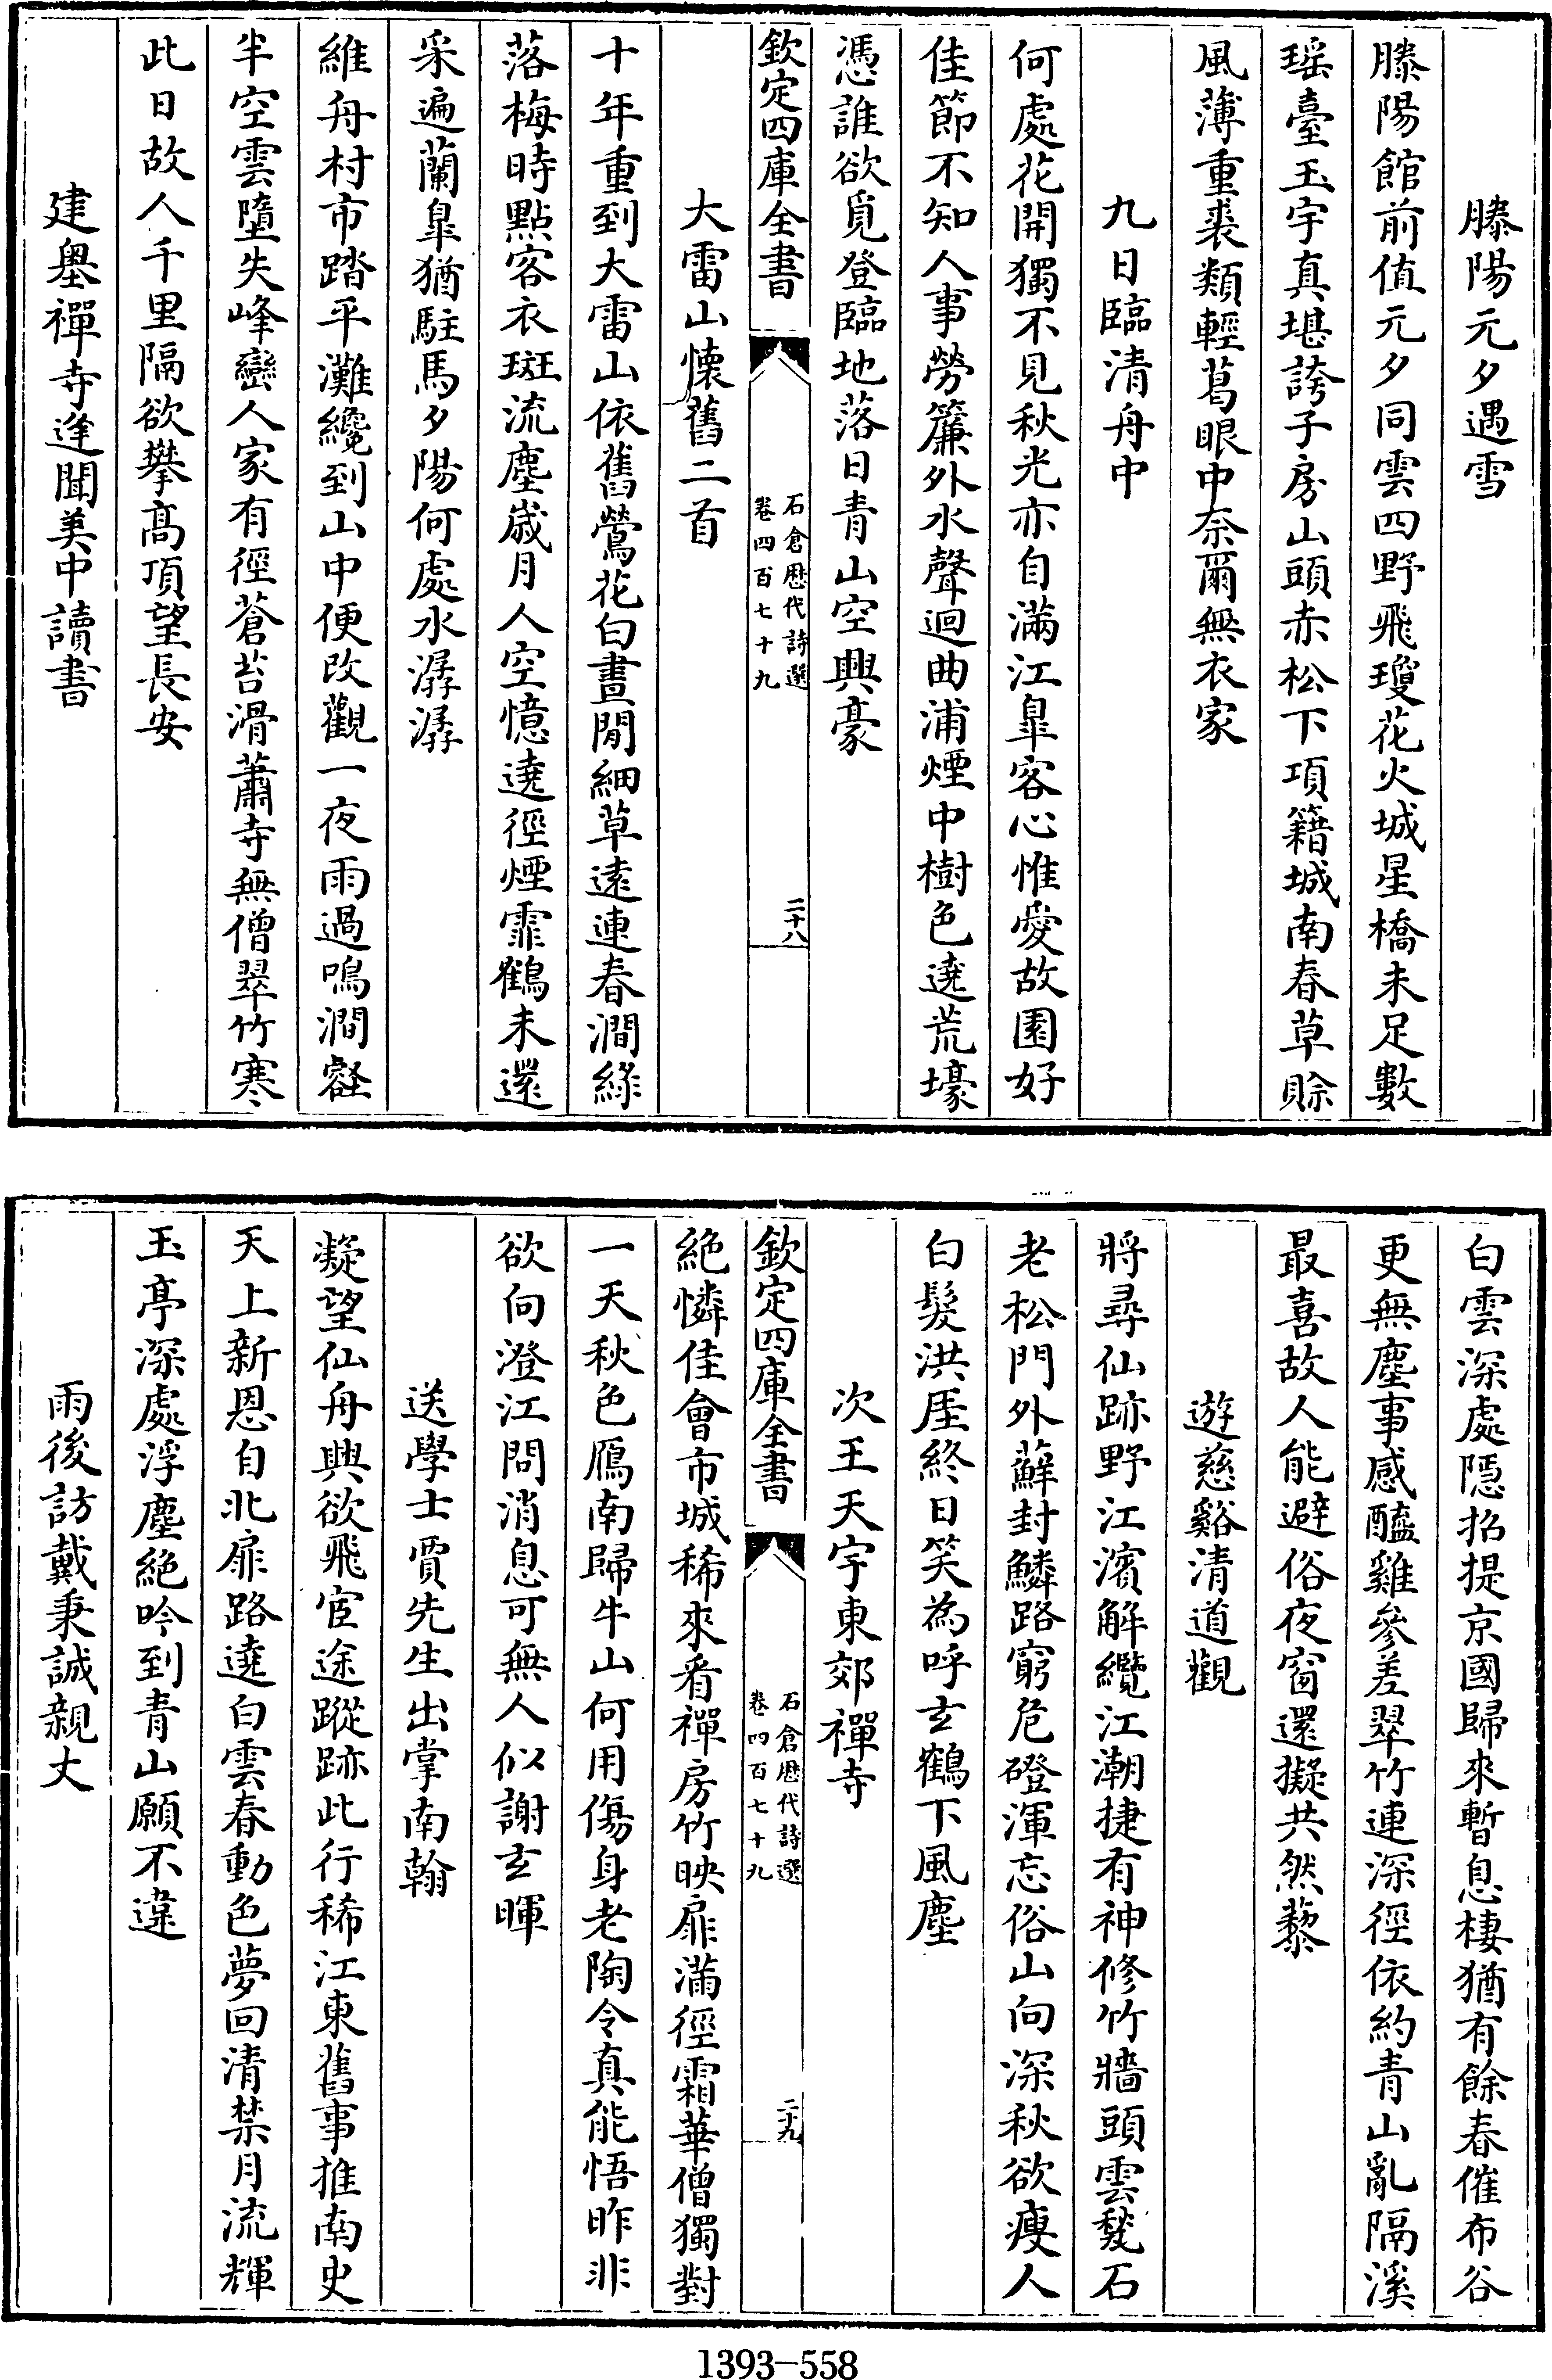 滕陽元夕遇雪
滕陽館前值元夕同雲四野飛瓊花火城星橋未足數
瑶臺玉宇真堪誇子房山頭赤松下項籍城南春草賒
風薄重裘類輕葛眼中奈爾無衣家
九日臨清舟中
何處花開獨不見秋光亦自滿江臯客心惟愛故園好
佳節不知人事勞簾外水聲迴曲浦煙中樹色遶荒壕
憑誰欲覓登臨地落日青山空興豪
欽定四庫全書
石倉歴代詩選
卷四百七十九
二十八
大雷山懐舊二首
十年重到大雷山依舊鶯花白晝閒細草逺連春澗綠
落梅時點客衣斑流塵嵗月人空憶遶徑煙霏鶴未還
采遍蘭臯猶駐馬夕陽何處水潺潺
維舟村市踏平灘纔到山中便改觀一夜雨過鳴澗壑
半空雲墮失峰巒人家有徑蒼苔滑蕭寺無僧翠竹寒
此日故人千里隔欲攀髙頂望長安
建嶴禪寺逢聞美中讀書
白雲深處隠招提京國歸來暫息棲猶有餘春催布谷
更無塵事感醯雞參差翠竹連深徑依約青山亂隔溪
最喜故人能避俗夜窗還擬共然藜
遊慈谿清道觀
將尋仙跡野江濱解纜江潮捷有神修竹牆頭雲甃石
老松門外蘚封鱗路窮危磴渾忘俗山向深秋欲瘦人
白髮洪厓終日笑為呼玄鶴下風塵
次王天宇東郊禪寺
欽定四庫全書
石倉歴代詩選
卷四百七十九
二十九
絶憐佳會市城稀來看禪房竹映扉滿徑霜華僧獨對
一天秋色鴈南歸牛山何用傷身老陶令真能悟昨非
欲向澄江問消息可無人似謝玄暉
送學士賈先生出掌南翰
凝望仙舟興欲飛宦途蹤跡此行稀江東舊事推南史
天上新恩自北扉路遶白雲春動色夢回清禁月流輝
玉亭深處浮塵絶吟到青山願不違
雨後訪戴秉誠親丈
1393-558